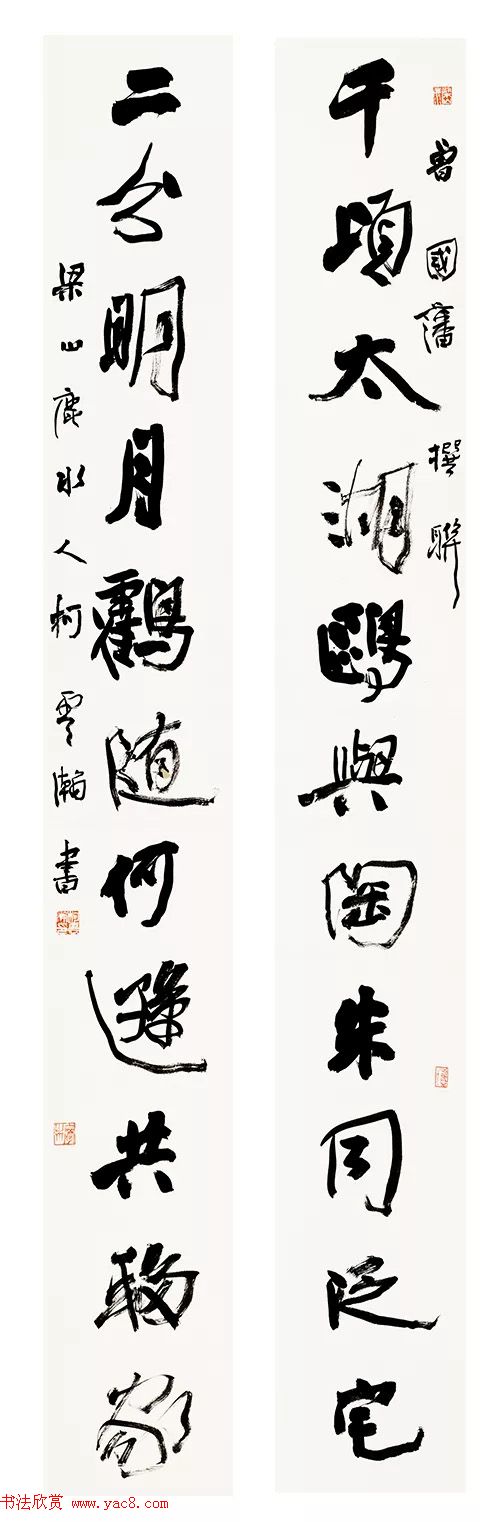 千頃太湖鷗與陶朱同泛宅
曾國藩撰聯
二分明月鶴随何遜共移家
梁山鹿水人柯雲瀚書
书法欣赏 www.yac8.com